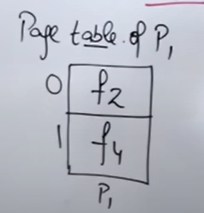 Page table of P1
0 f2
1 f4
P1